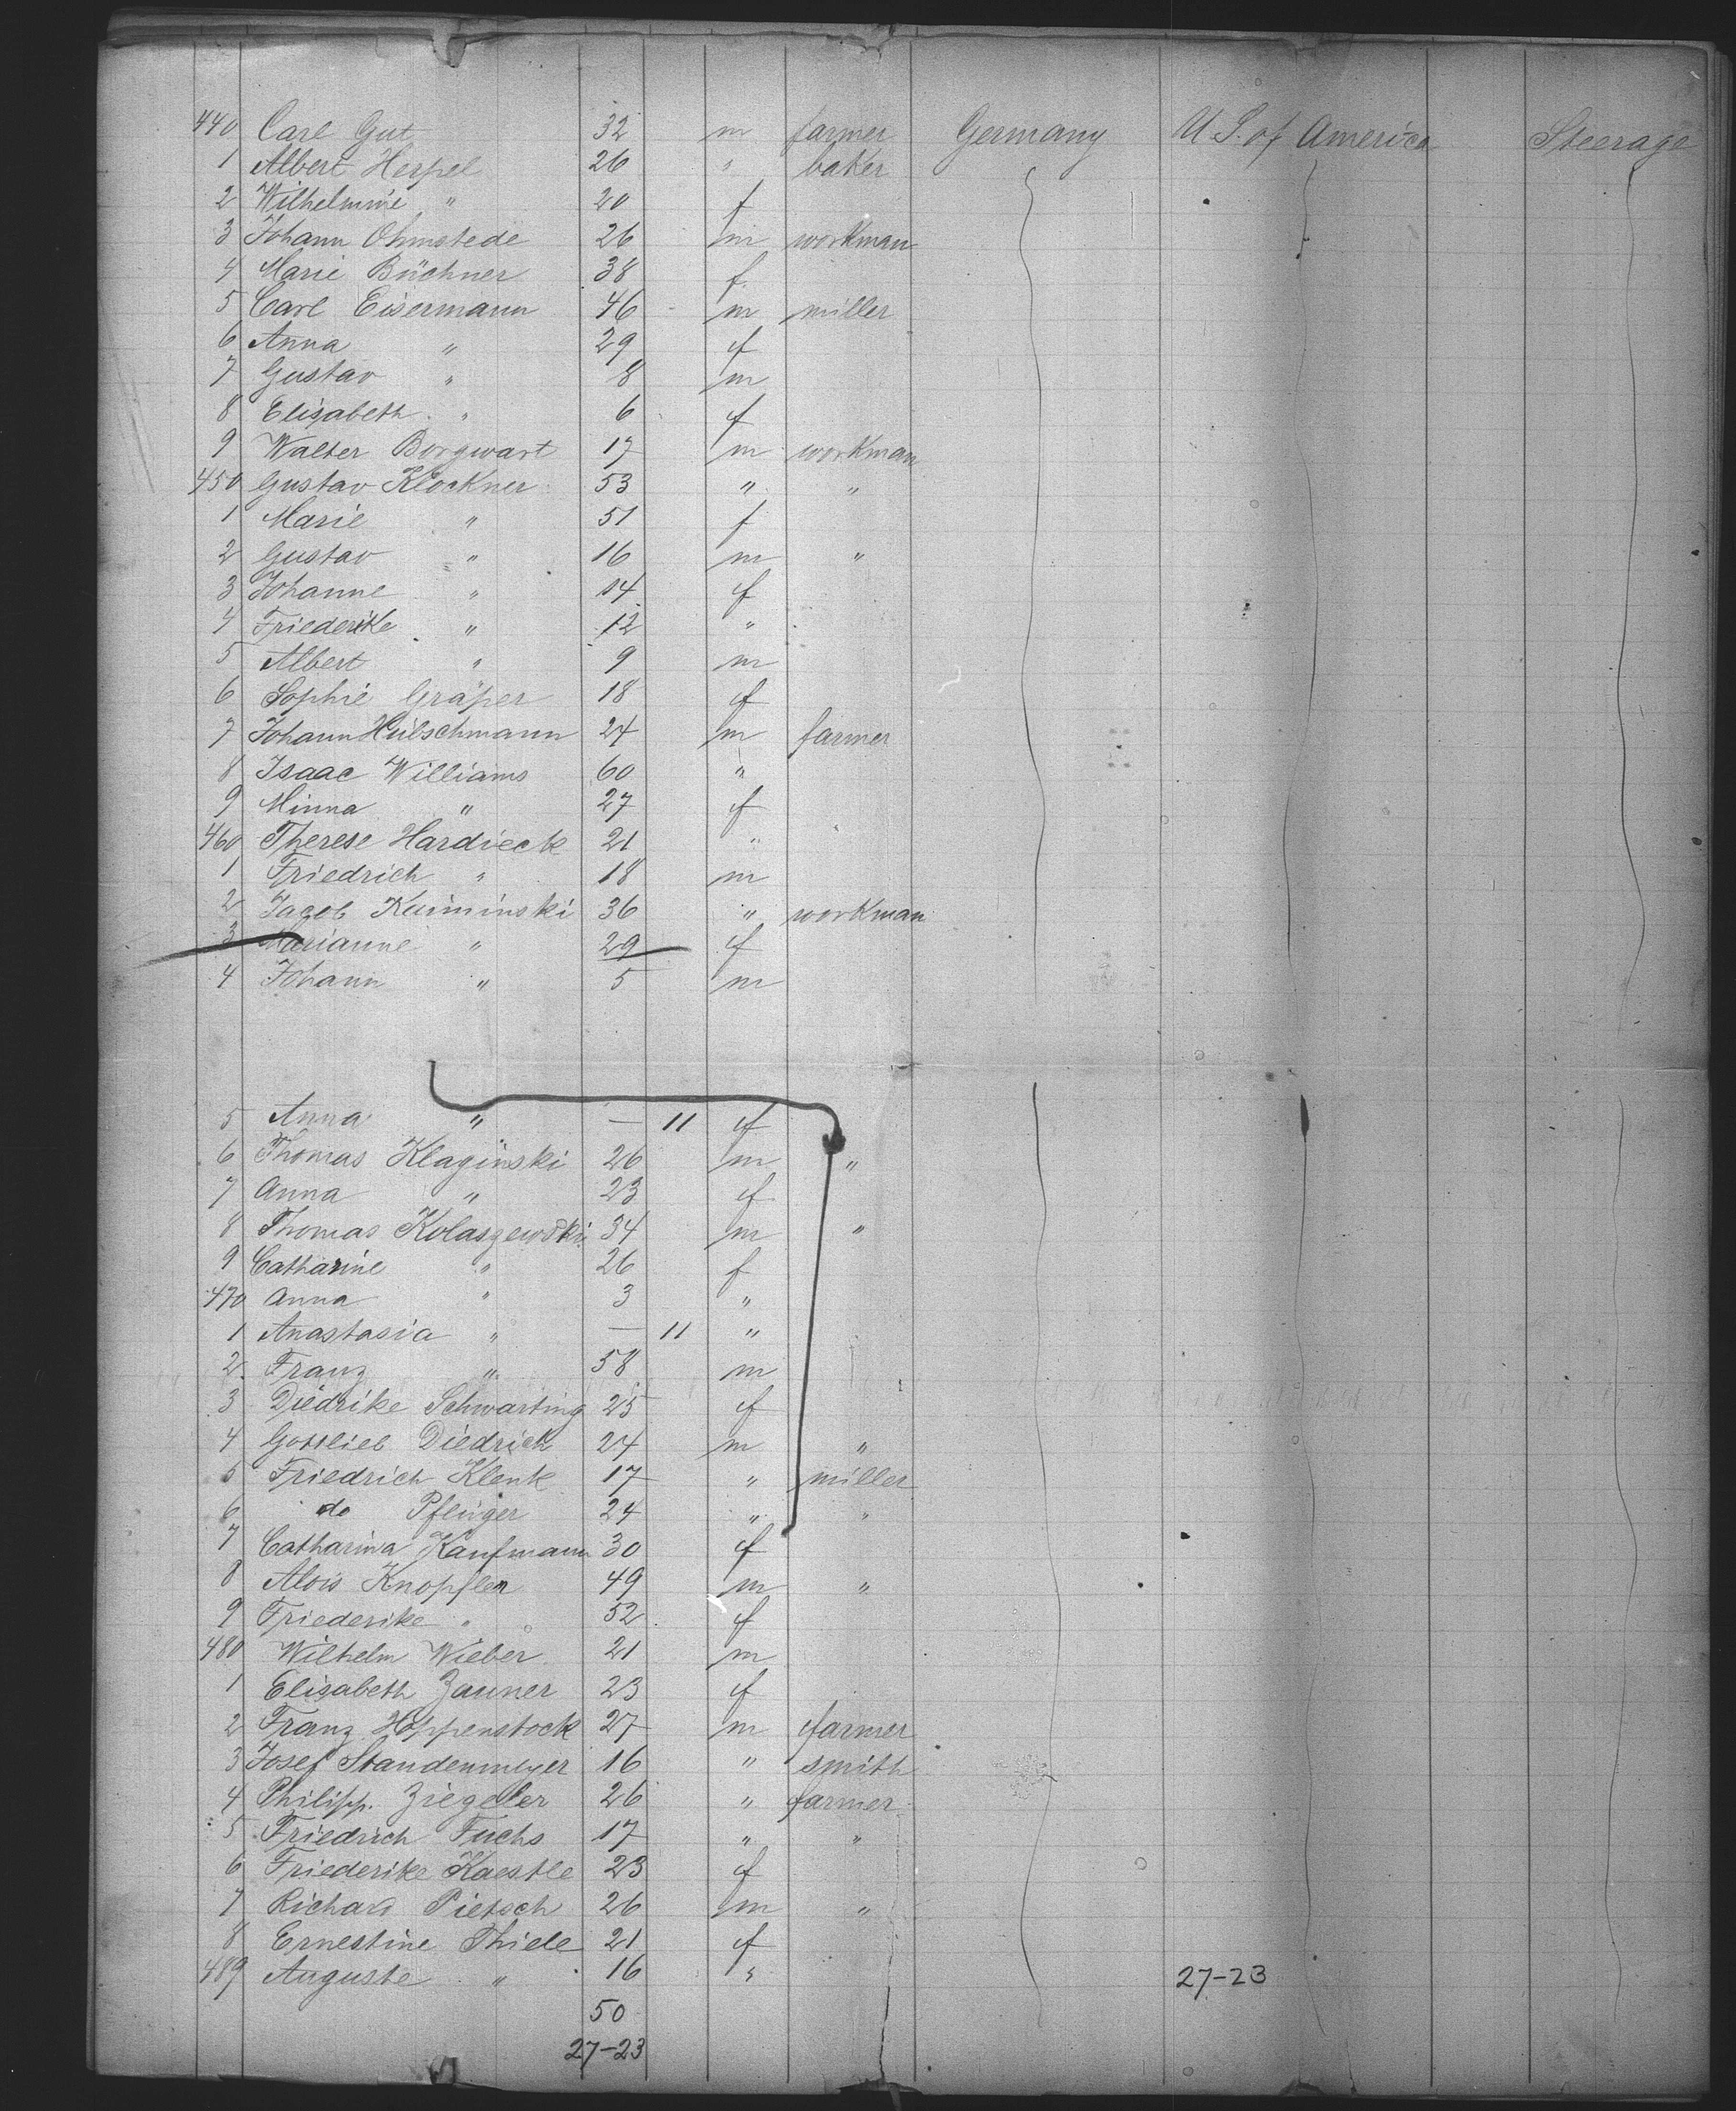 440 Carl Gut 32 m farmer Germany U.S. of America Steerage
1 Albert Herpel 26 " baker
2 Wilhelmine " 20 f
3 Johann Ohmstede 26 m workman
4 Marie Büchner 38 f.
5 Carl Eisermann 46 m miller
6 Anna " 29 f
7 Gustav " 8 m
8 Elisabeth " 6 f
9 Walter Borgwart 17 m workman
450 Gustav Klockner 53 " "
1 Marie " 51 f
2 Gustav " 16 m "
3 Johanne " 14 f
4 Friederike " 12 "
5 Albert " 9 m
6 Sophie Gräper 18 f
7 Johann Hübschmann 24 m farmer
8 Isaac Williams 60 "
9 Minna " 27 f
460 Therese Hardieck 21 "
1 Friedrich " 18 m
2 Jacob Kuiminski 36 " workman
3 Marianne " 29 f
4 Johann " 5 m
5 Anna " — 11 f
6 Thomas Klaginski 26 m "
7 Anna " 23 f
8 Thomas Kolaszewski 34 m "
9 Catharine " 26 f
470 Anna " 3 "
1 Anastasia " — 11 "
2 Franz " 58 m
3 Diedrike Schwarting 25 f
4 Gottlieb Diedrich 24 m "
5 Friedrich Klenk 17 " miller
6 do Pflüger 24 " "
7 Catharina Kaufmann 30 f
8 Alois Knopfler 49 m "
9 Friederike " 52 f
480 Wilhelm Wieber 21 m
1 Elisabeth Zauner 23 f
2 Franz Hoppenstock 27 m farmer
3 Josef Staudenmeyer 16 " smith
4 Philipp. Ziegeler 26 " farmer
5 Friedrich Fuchs 17 " "
6 Friederike Kaestle 23 f
7 Richard Pietsch 26 m "
8 Ernestine Thiele 21 f
489 Auguste " 16 " 27-23
50
27-23